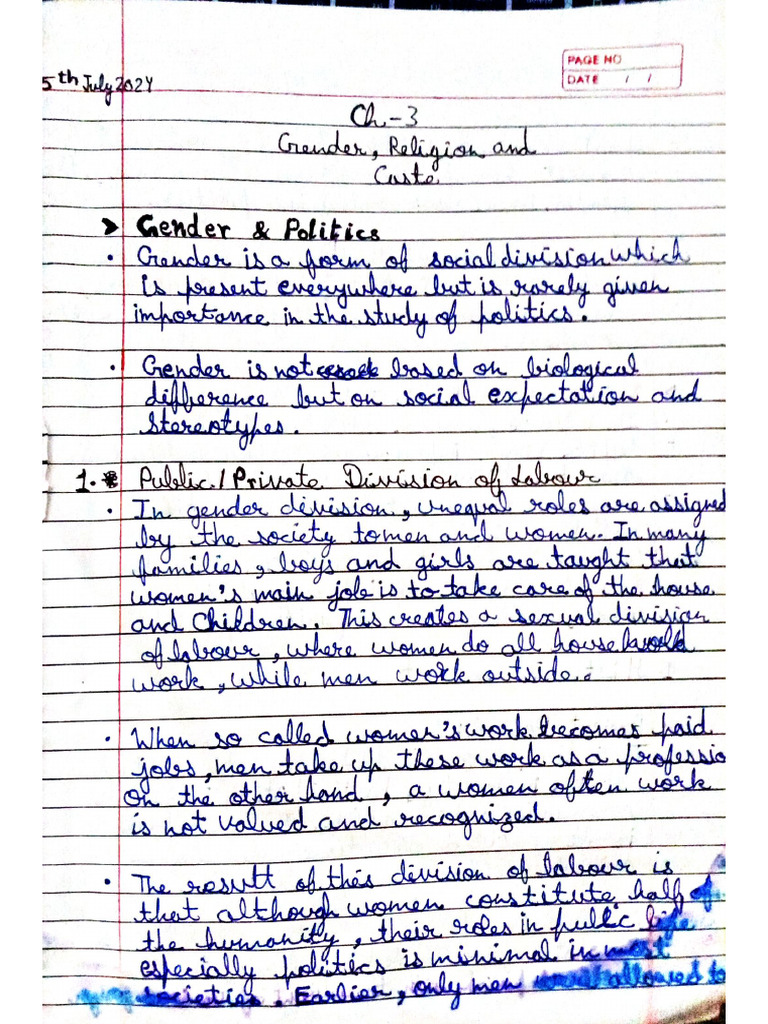 PAGE NO
DATE / /
5th July 2024
Ch-3
Gender, Religion and
Caste
> Gender & Politics
• Gender is a form of social division which
is present everywhere but is rarely given
importance in the study of politics.
• Gender is not based on biological
difference but on social expectation and
stereotypes.
1. Public/Private Division of Labour
• In gender division, unequal roles are assigned
by the society to men and women. In many
families, boys and girls are taught that
women's main job is to take care of the house
and Children. This creates a sexual division
of labour, where women do all house
work, while men work outside.
• When so called women's work becomes paid
jobs, men take up these work as a professio
On the other hand, a women often work
is not valued and recognized.
• The result of this division of labour is
that although women constitute half of
the humanity, their roles in public life
especially politics is minimal in most
societies. Earlier, only men allowed to